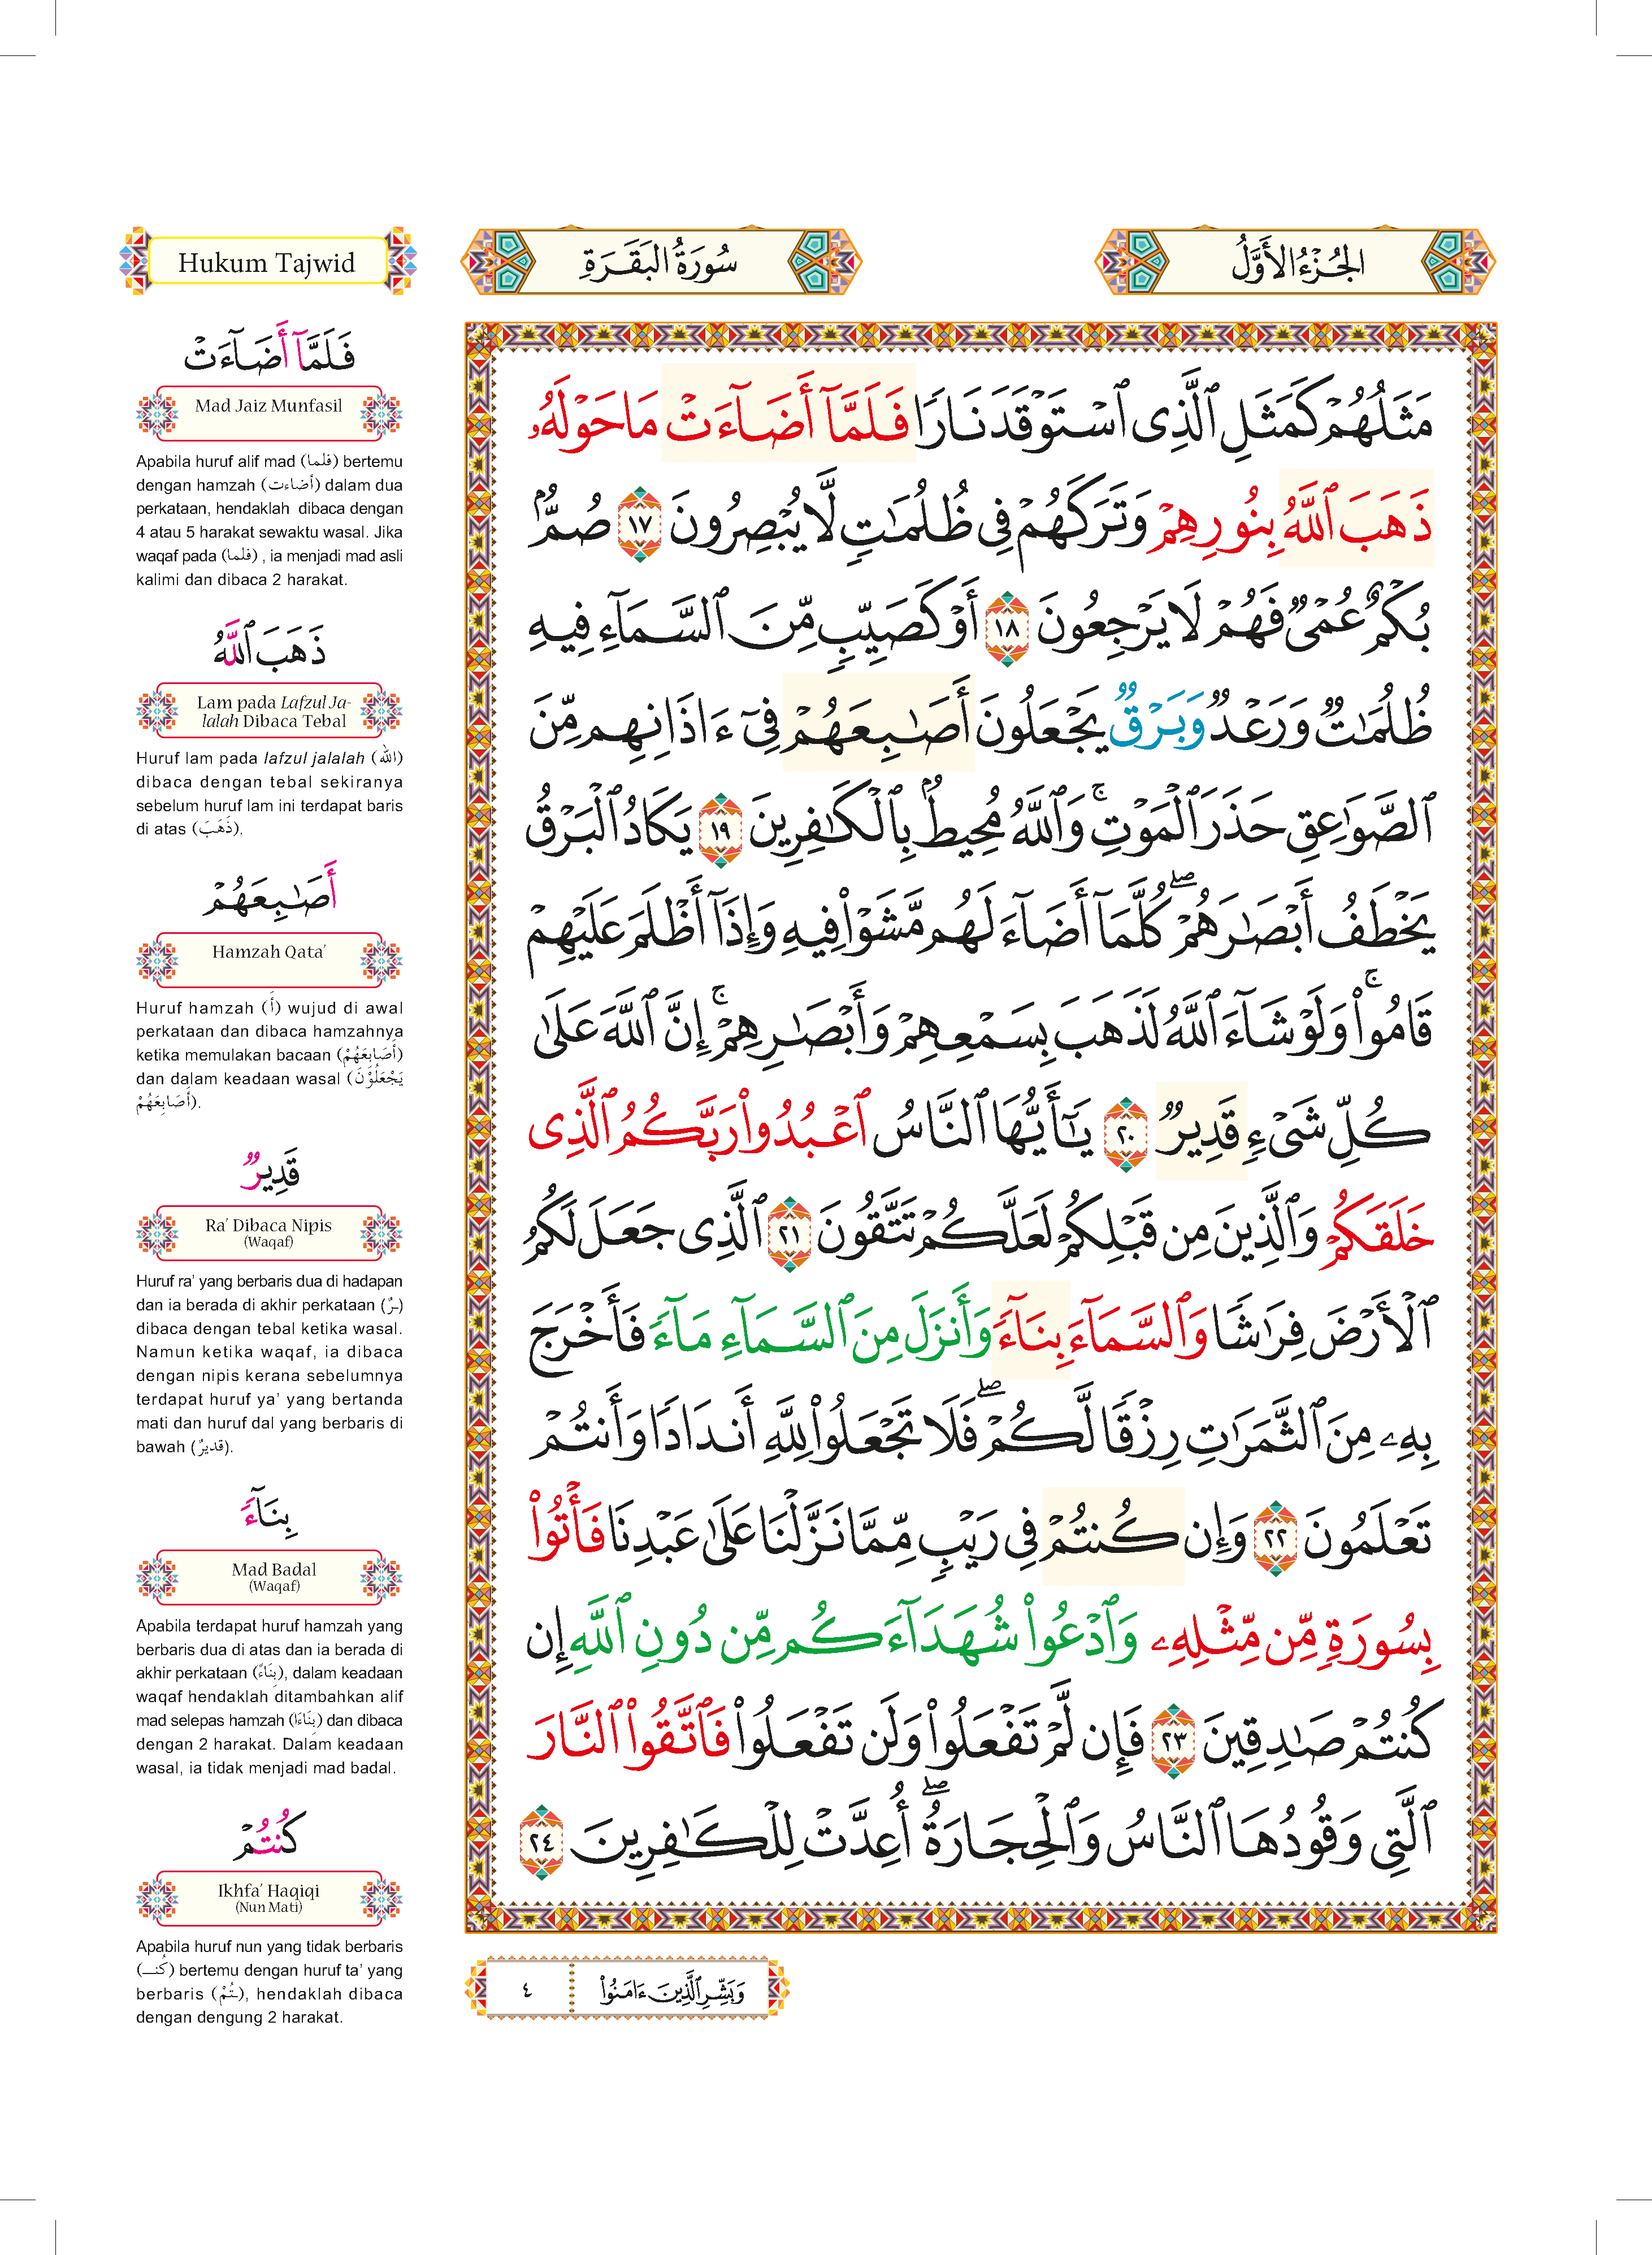 Hukum Tajwid
سُورَةُ البَقَرَةِ
الجُزْءُ الأَوَّلُ
فَلَمَّآ أَضَآءَتْ
Mad Jaiz Munfasil
Apabila huruf alif mad (فلما) bertemu
dengan hamzah (أضاءت) dalam dua
perkataan, hendaklah dibaca dengan
4 atau 5 harakat sewaktu wasal. Jika
waqaf pada (فلما) , ia menjadi mad asli
kalimi dan dibaca 2 harakat.
ذَهَبَ ٱللَّهُ
Lam pada Lafzul Ja-
lalah Dibaca Tebal
Huruf lam pada lafzul jalalah (الله)
dibaca dengan tebal sekiranya
sebelum huruf lam ini terdapat baris
di atas (ذَهَبَ).
أَصَٰبِعَهُمْ
Hamzah Qata’
Huruf hamzah (أَ) wujud di awal
perkataan dan dibaca hamzahnya
ketika memulakan bacaan (أَصَابِعَهُمْ)
dan dalam keadaan wasal (يَجْعَلُوْنَ
أَصَابِعَهُمْ).
قَدِيرٌ
Ra’ Dibaca Nipis
(Waqaf)
Huruf ra’ yang berbaris dua di hadapan
dan ia berada di akhir perkataan (ـرٌ)
dibaca dengan tebal ketika wasal.
Namun ketika waqaf, ia dibaca
dengan nipis kerana sebelumnya
terdapat huruf ya’ yang bertanda
mati dan huruf dal yang berbaris di
bawah (قديرٌ).
بِنَآءً
Mad Badal
(Waqaf)
Apabila terdapat huruf hamzah yang
berbaris dua di atas dan ia berada di
akhir perkataan (بِنَاءً), dalam keadaan
waqaf hendaklah ditambahkan alif
mad selepas hamzah (بِنَاءَا) dan dibaca
dengan 2 harakat. Dalam keadaan
wasal, ia tidak menjadi mad badal.
كُنتُمْ
Ikhfa’ Haqiqi
(Nun Mati)
Apabila huruf nun yang tidak berbaris
(كُنـ) bertemu dengan huruf ta’ yang
berbaris (ـتُمْ), hendaklah dibaca
dengan dengung 2 harakat.
مَثَلُهُمْ كَمَثَلِ ٱلَّذِى ٱسْتَوْقَدَ نَارًا فَلَمَّآ أَضَآءَتْ مَا حَوْلَهُۥ
ذَهَبَ ٱللَّهُ بِنُورِهِمْ وَتَرَكَهُمْ فِى ظُلُمَٰتٍ لَّا يُبْصِرُونَ ١٧ صُمٌّۢ
بُكْمٌ عُمْىٌ فَهُمْ لَا يَرْجِعُونَ ١٨ أَوْ كَصَيِّبٍ مِّنَ ٱلسَّمَآءِ فِيهِ
ظُلُمَٰتٌ وَرَعْدٌ وَبَرْقٌ يَجْعَلُونَ أَصَٰبِعَهُمْ فِىٓ ءَاذَانِهِم مِّنَ
ٱلصَّوَٰعِقِ حَذَرَ ٱلْمَوْتِ ۚ وَٱللَّهُ مُحِيطٌۢ بِٱلْكَٰفِرِينَ ١٩ يَكَادُ ٱلْبَرْقُ
يَخْطَفُ أَبْصَٰرَهُمْ ۖ كُلَّمَآ أَضَآءَ لَهُم مَّشَوْا۟ فِيهِ وَإِذَآ أَظْلَمَ عَلَيْهِمْ
قَامُوا۟ ۚ وَلَوْ شَآءَ ٱللَّهُ لَذَهَبَ بِسَمْعِهِمْ وَأَبْصَٰرِهِمْ ۚ إِنَّ ٱللَّهَ عَلَىٰ
كُلِّ شَىْءٍ قَدِيرٌ ٢٠ يَٰٓأَيُّهَا ٱلنَّاسُ ٱعْبُدُوا۟ رَبَّكُمُ ٱلَّذِى
خَلَقَكُمْ وَٱلَّذِينَ مِن قَبْلِكُمْ لَعَلَّكُمْ تَتَّقُونَ ٢١ ٱلَّذِى جَعَلَ لَكُمُ
ٱلْأَرْضَ فِرَٰشًا وَٱلسَّمَآءَ بِنَآءً وَأَنزَلَ مِنَ ٱلسَّمَآءِ مَآءً فَأَخْرَجَ
بِهِۦ مِنَ ٱلثَّمَرَٰتِ رِزْقًا لَّكُمْ ۖ فَلَا تَجْعَلُوا۟ لِلَّهِ أَندَادًا وَأَنتُمْ
تَعْلَمُونَ ٢٢ وَإِن كُنتُمْ فِى رَيْبٍ مِّمَّا نَزَّلْنَا عَلَىٰ عَبْدِنَا فَأْتُوا۟
بِسُورَةٍ مِّن مِّثْلِهِۦ وَٱدْعُوا۟ شُهَدَآءَكُم مِّن دُونِ ٱللَّهِ إِن
كُنتُمْ صَٰدِقِينَ ٢٣ فَإِن لَّمْ تَفْعَلُوا۟ وَلَن تَفْعَلُوا۟ فَٱتَّقُوا۟ ٱلنَّارَ
ٱلَّتِى وَقُودُهَا ٱلنَّاسُ وَٱلْحِجَارَةُ ۖ أُعِدَّتْ لِلْكَٰفِرِينَ ٢٤
وَبَشِّرِ ٱلَّذِينَ ءَامَنُوا۟
٤